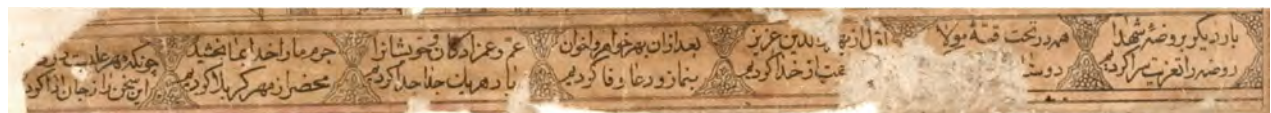 بار دیگر بروضهٔ شهدا
روضه را تعزیت سرا کردیم
همه در تحت قبّهٔ مولا
اوّل از بهر والدین عزیز
از خدا کردیم
بعد ازان بهر خواهر و اخوان
بنماز و دعا وفا کردیم
عمّ و عمزادگان و خویشانرا
یاد هر یک جدا جدا کردیم
جرم ما را خدا بما بخشید
محضر از مهر کربلا کردیم
چونکه مهر
این سخن را ز جان